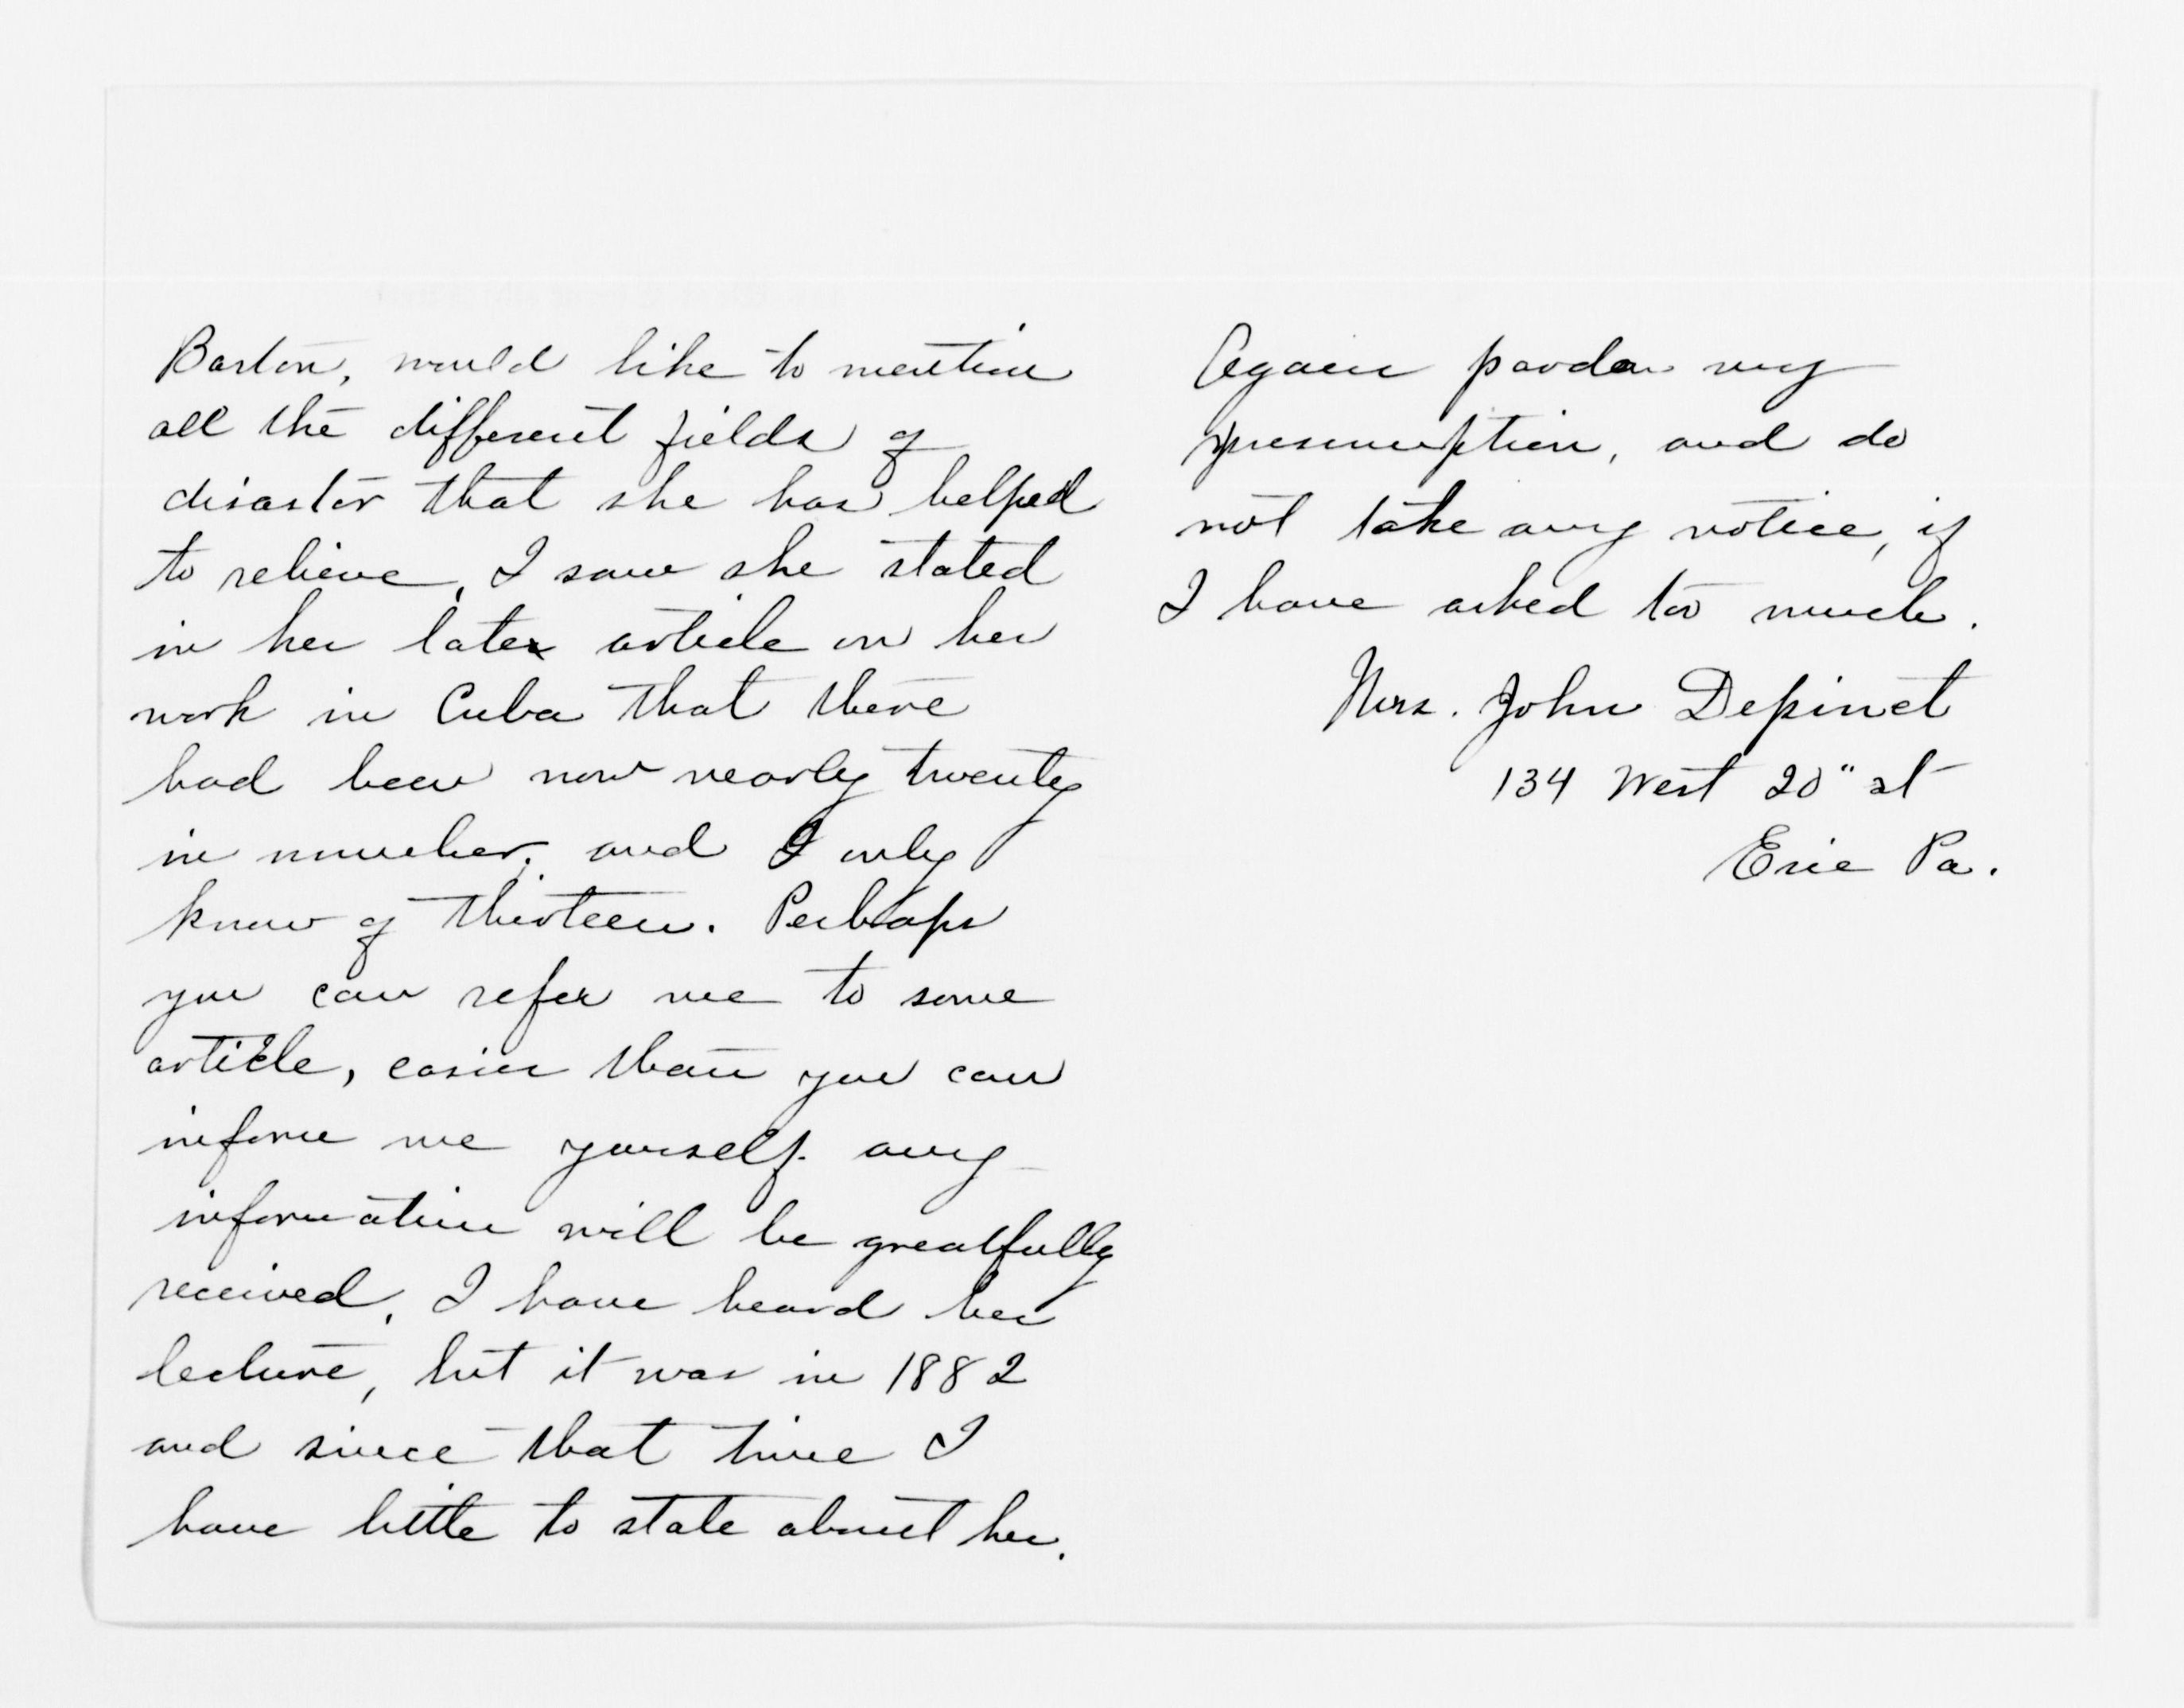 Barton, would like to mention
all the different fields of
disaster that she has helped
to relieve, I saw she stated
in her later article on her
work in Cuba that there
had been now nearly twenty
in number, and I only
know of thirteen. Perhaps
you can refer me to some
article, easier than you can
inform me yourself. any
information will be greatfully
received, I have heard her
lecture, but it was in 1882
and since that time I
have little to state about her.
Again pardon my
presumption, and do
not take any notice, if
I have asked too much.
Mrs. John Depinet
134 West 20" st
Erie Pa.